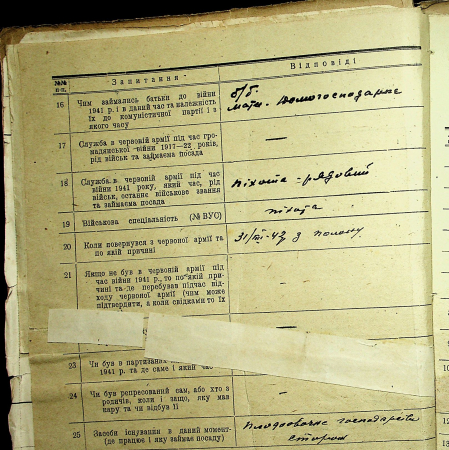 №№ п-п.
- Запитання -
Відповіді
16
Чим займались батьки до війни
1941 р. і в даний час та належність
їх до комуністичної партії і з
якого часу
б/б.
Мати - домогосподарка
17
Служба в червоній армії під час гро-
мадянської війни 1917—22 років,
рід військ та займаєма посада
—
18
Служба в червоній армії під час
війни 1941 року, який час, рід
військ, останнє військове звання
та займаєма посада
піхота - рядовий
19
Військова спеціальність (№ ВУС)
піхота
20
Коли повернувся з червоної армії та
по якій причині
з полону.
21
Якщо не був в червоній армії під
час війни 1941 р., то по якій при-
чині та де перебував підчас від-
ходу червоної армії (чим може
підтвердити, а коли свідками то їх
—
23
Чи був в партизанах
1941 р. та де саме і який час
—
24
Чи був репресований сам, або хто з
родичів, коли і защо, яку мав
кару та чи відбув її
—
25
Засоби існування в даний момент-
(де працює і яку займає посаду)
Плодоовочне господарство
сторож
12
13